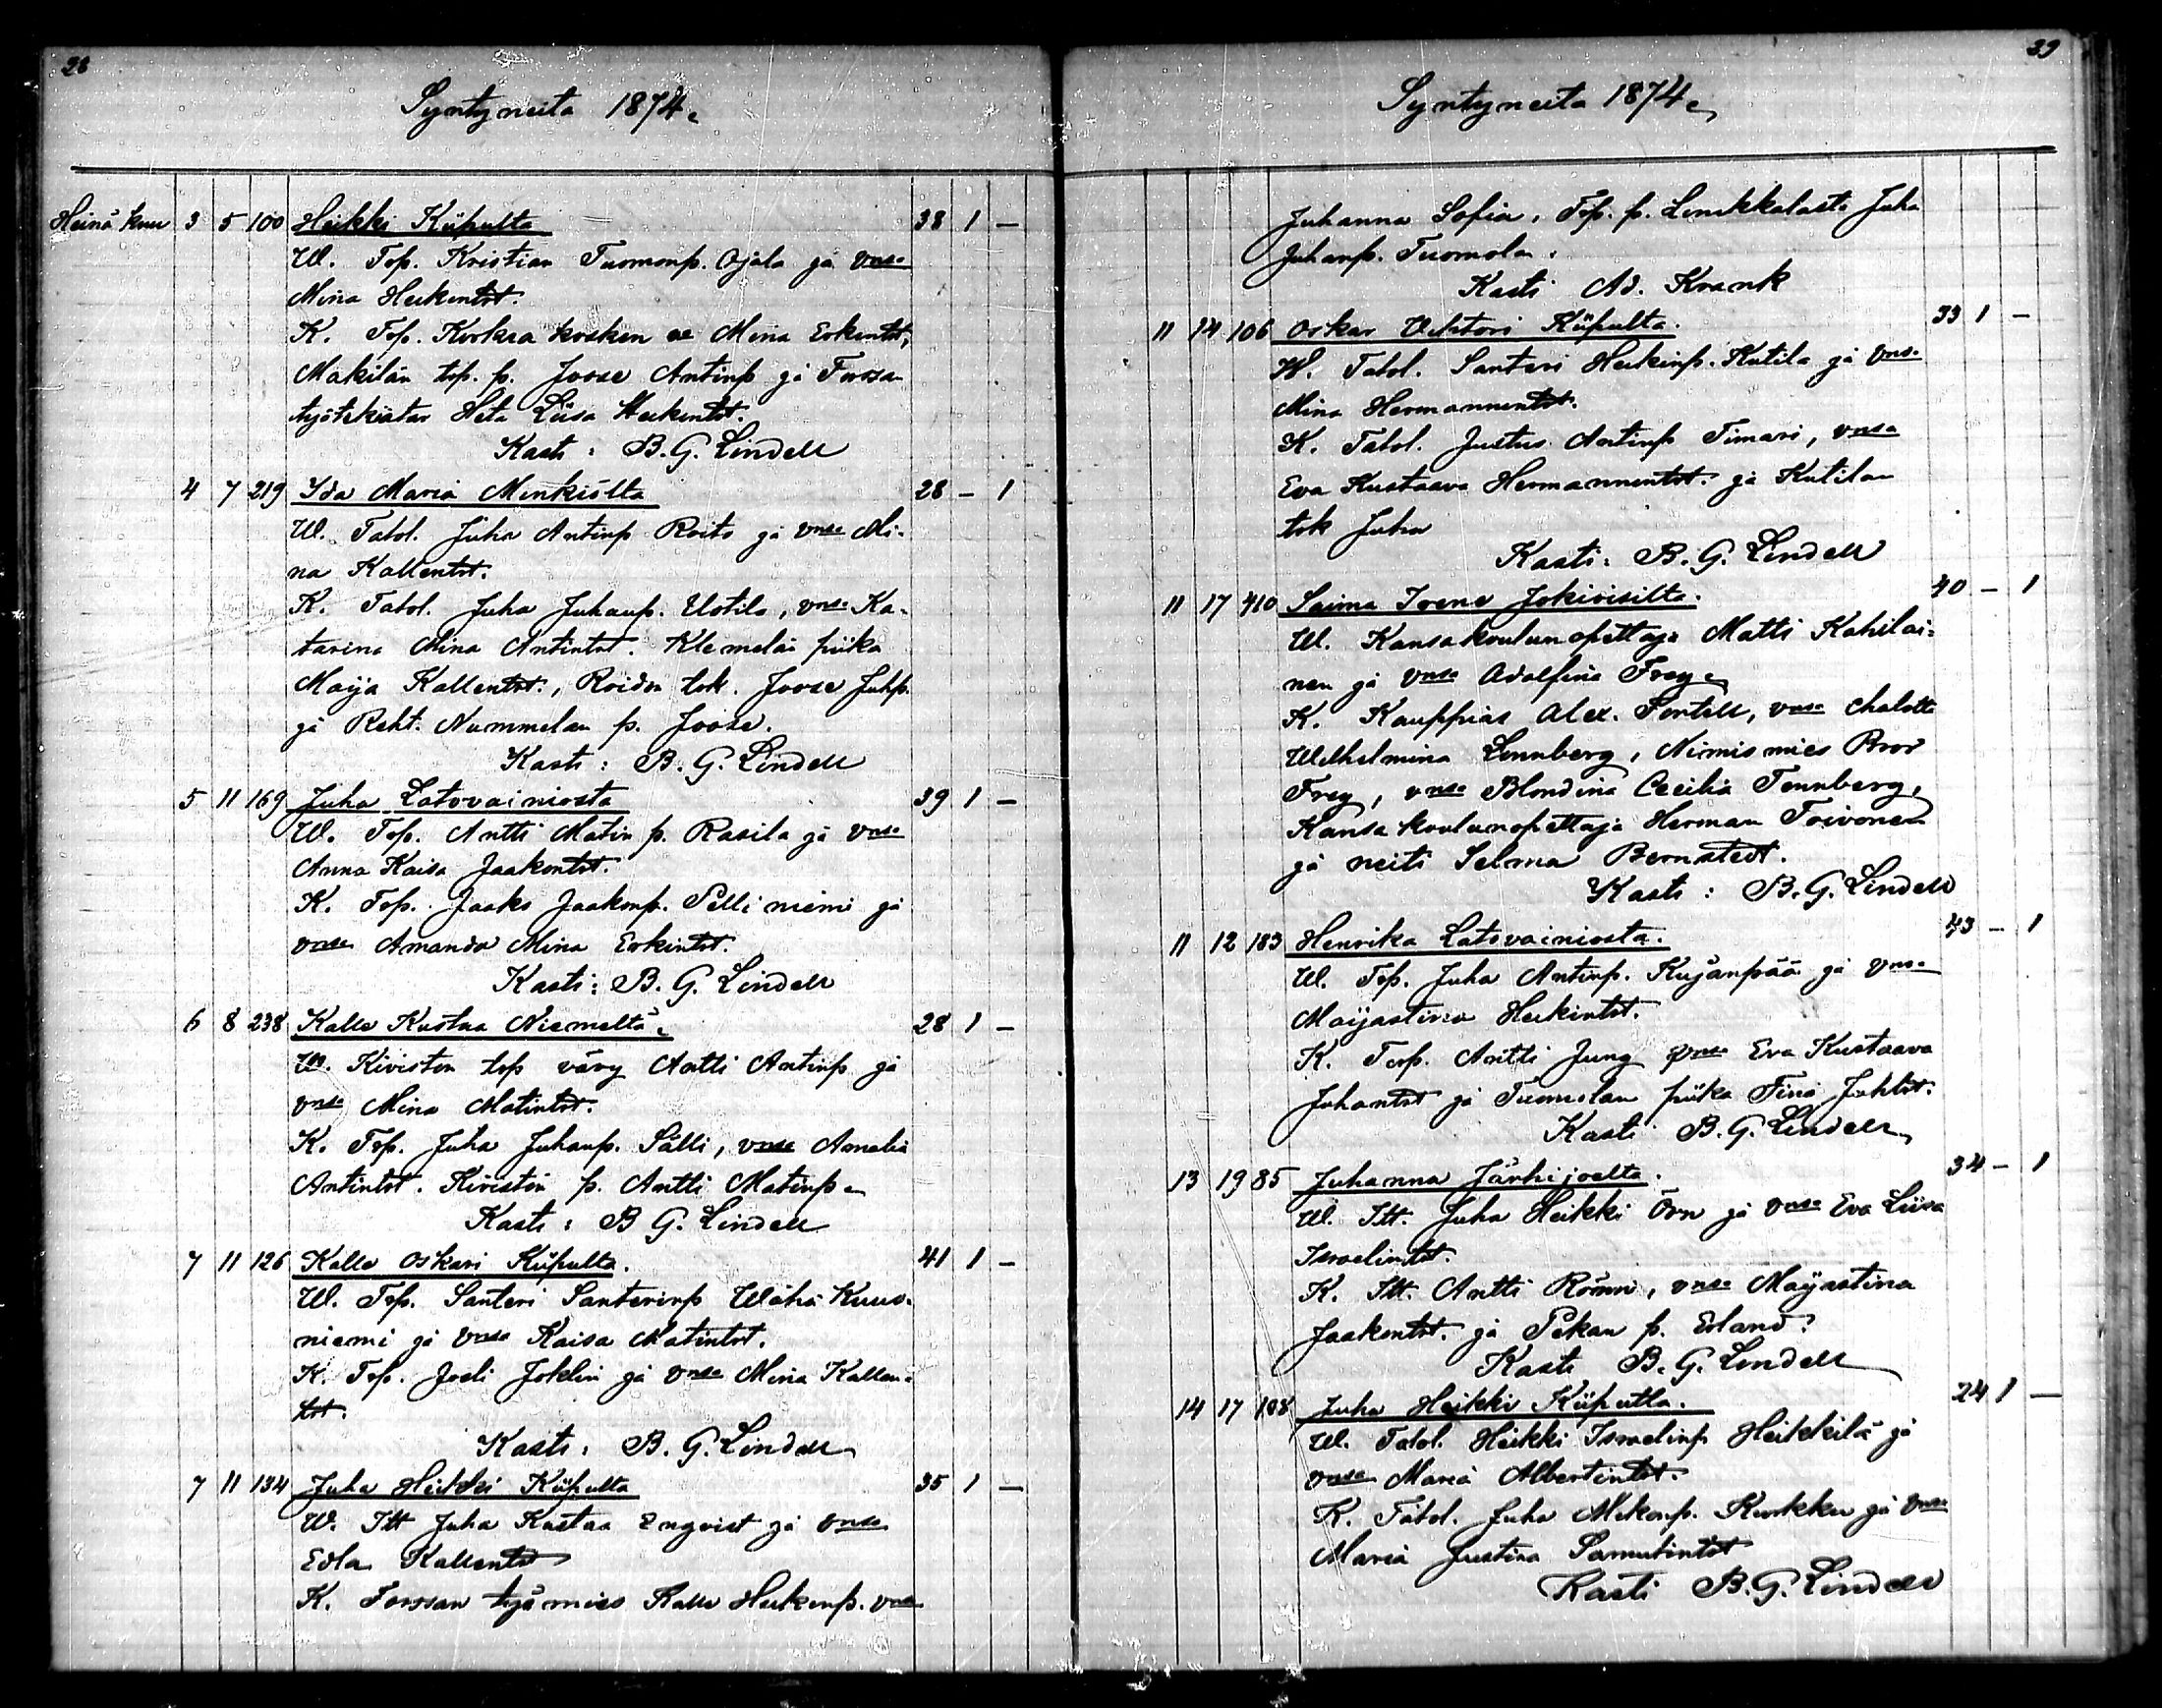 28
Syntyneitä 1874.
Heinä kuu 3 5 100 Heikki Kiipulta 38 1 —
W. Top. Kristian Tuomonp. Ojala ja vmsa
Mina Heikintrt.
K. Top. Korkea kosken Mina Erkintrt,
Mäkilän top. p. Joose Antinp ja Forssan
Heta Liisa Heikintrt
Kasti: B. G. Lindell
4 7 219 Ida Maria Minkiöltä 28 — 1
W. Talol. Juha Antinp Roito ja vmsa Mi-
na Kallentrt.
K. Talol. Juha Juhanp. Uotila, vmsa Ka-
tarina Mina Antintrt. Klemelän piika
Maija Kallentrt., Roidon tok. Joose Juhp.
ja Reht. Nummelan p. Joose.
Kasti: B. G. Lindell
5 11 169 Juha Latovainiosta 39 1 —
W. Top. Antti Matin p. Rasila ja vmsa
Anna Kaisa Jaakontrt.
K. Top. Jaako Jaakonp. Pelli niemi ja
vmsa Amanda Mina Erkintrt.
Kasti: B. G. Lindell
6 8 238 Kalle Kustaa Niemeltä 28 1 —
W. Kiviston top väry Antti Antinp ja
vmsa Mina Matintrt.
K. Top. Juha Juhanp. Sälli, vmsa Amalia
Antintrt. Kivistön p. Antti Matinp
Kasti: B G. Lindell
7 11 126 Kalle Oskari Kiipulta. 41 1 —
W. Top. Santeri Santerinp Wähä Kuus-
niemi ja vmsa Kaisa Matintrt.
K. Top. Joeli Joklin ja vmsa Mina Kallen-
trt.
Kasti: B. G. Lindell
7 11 134 Juha Heikki Kiipulta 35 1 —
W. Itt Juha Kustaa Enqvist ja vmsa
Edla Kallentrt
K. Forssan työmies Kalle Heikinp. vmsa
29
Syntyneitä 1874
Juhanna Sofia, Top. p. Linikkalasta Juha
Juhanp. Tuomola.
Kasti Ad. Krank
11 14 106 Oskar Vihtori Kiipulta. 33 1 —
W. Talol. Santeri Heikinp. Kutila ja vmsa
Mina Hermannintrt.
K. Talol. Justus Antinp Timari, vmsa
Eva Kustaava Hermannintrt. ja Kutilan
tok Juha
Kasti: B. G. Lindell
11 17 410 Saima Irene Jokioisilta. 40 — 1
W. Kansakoulunopettaja Matti Kahilai-
nen ja vmsa Adolfina Frey
K. Kauppias Alex. Fontell, vmsa Chalotta
Wilhelmina Lönnberg, Nimismies Bror
Frey, vmsa Blondina Cecilia Tennberg,
Kansa koulunopettaja Herman Toivonen
ja neiti Selma Bernstedt.
Kasti: B. G. Lindell
11 12 183 Henrika Latovainiosta. 43 — 1
W. Top. Juha Antinp. Kujanpää ja vmsa
Maijastina Heikintrt.
K. Top. Antti Jung vmsa Eva Kustaava
Juhantrt ja Tuomolan piika Fina Juhtrt.
Kasti B. G. Lindell
13 19 85 Juhanna Järhijoelta. 34 — 1
W. Itt. Juha Heikki Örn ja vmsa Eva Liisa
Israelintrt.
K. Itt. Antti Römni, vmsa Maijastina
Jaakontrt. ja Pekan p. Erland?
Kasti B. G. Lindell
14 17 108 Juha Heikki Kiipulta. 24 1 —
W. Talol. Heikki Israelinp Heikkilä ja
vmsa Maria Albertintrt.
K. Talol. Juha Mikonp. Kurkku ja vmsa
Maria Justina Samulintrt
Kasti B. G. Lindell